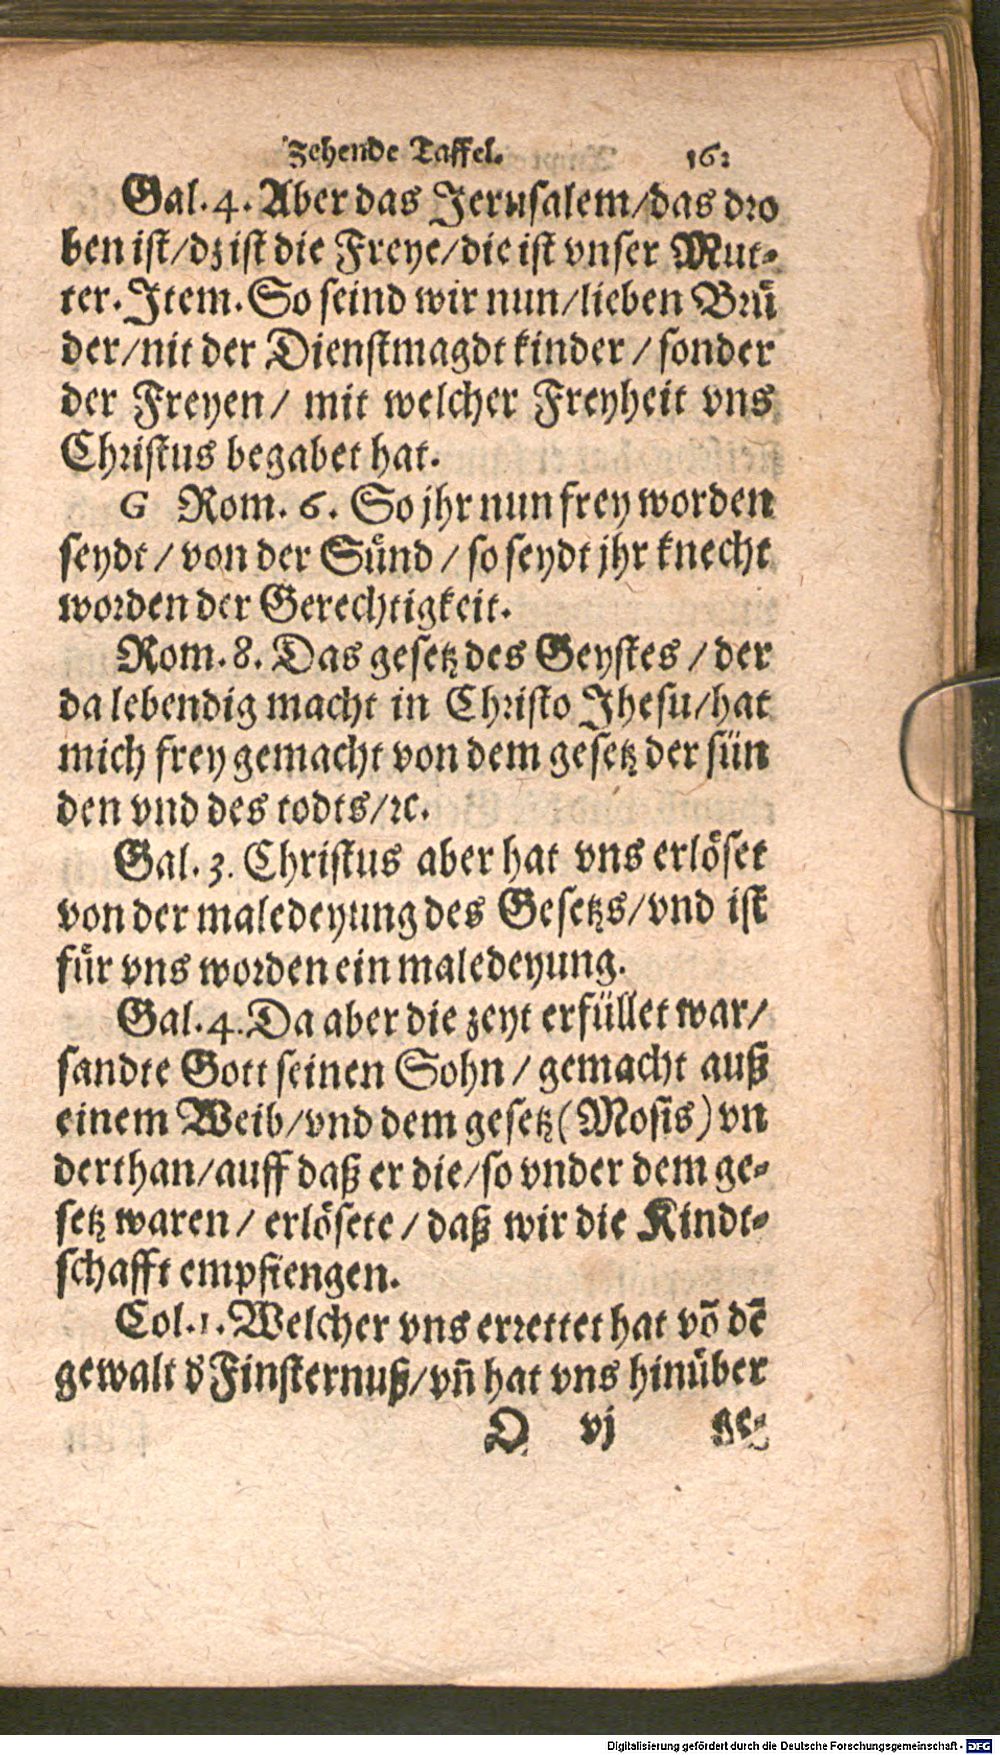 Zehende Taffel. 162
Gal. 4. Aber das Jerusalem/das dro
ben ist/dz ist die Freye/die ist vnser Mut-
ter. Item. So seind wir nun/lieben Bruͤ
der/nit der Dienstmagdt kinder / sonder
der Freyen/ mit welcher Freyheit vns
Christus begabet hat.
G Rom. 6. So jhr nun frey worden
seydt / von der Suͤnd / so seydt jhr knecht
worden der Gerechtigkeit.
Rom. 8. Das gesetz des Geystes / der
da lebendig macht in Christo Jhesu/hat
mich frey gemacht von dem gesetz der sün
den vnd des todts/ꝛc.
Gal. 3. Christus aber hat vns erloͤset
von der maledeyung des Gesetzs/vnd ist
fuͤr vns worden ein maledeyung.
Gal. 4. Da aber die zeyt erfüllet war/
sandte Gott seinen Sohn / gemacht auß
einem Weib/vnd dem gesetz (Mosis) vn
derthan/auff daß er die/so vnder dem ge-
setz waren / erloͤsete / daß wir die Kindt-
schafft empfiengen.
Col. 1. Welcher vns errettet hat võ dē
gewalt d' Finsternuß/vn̄ hat vns hinuͤber
D vj ge-
Digitalisierung gefördert durch die Deutsche Forschungsgemeinschaft - DFG